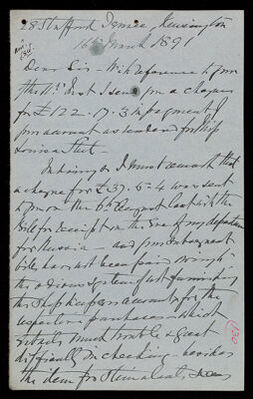 28 Stafford Terrace, Kensington
16th March 1891
Dear Sir - With reference to your
the 11th Inst I send you a cheque
for £122.17.3 in payment of
your account as tendered for Ship
Louisa
In doing so I must remark that
a cheque for £39.5.4 was sent
to you on the 6th August last with the
Bills for receipt on the Eve of my departure
for Russia - and your subsequent
bills have not been paid owing to
the odious system of not furnishing
the Shopkeepers accounts for the
respective purchases which
entails much trouble & great
difficulty in checking - besides
the item for
(130)